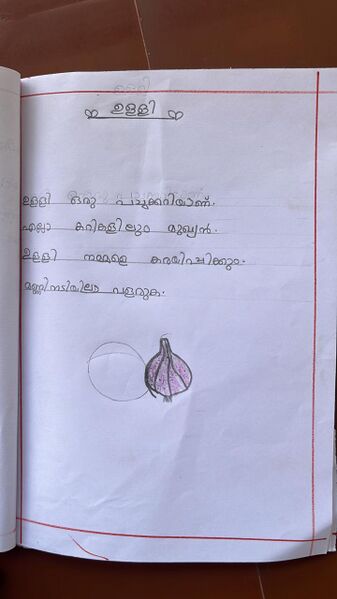 ഉള്ളി
ഉള്ളി ഒരു പച്ചക്കറിയാണ്.
എല്ലാ കറികളിലും മുഖ്യൻ.
ഉള്ളി നമ്മളെ കരയിപ്പിക്കും.
മണ്ണിനടിയിലാ വളരുക.